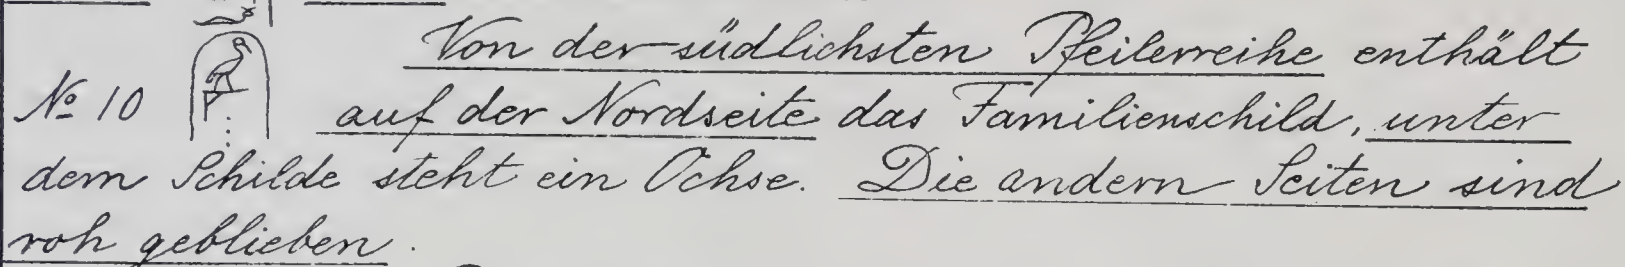 Von der südlichsten Pfeilerreihe enthält
№ 10 auf der Nordseite das Familienschild, unter
dem Schilde steht ein Ochse. Die andern Seiten sind
roh geblieben.